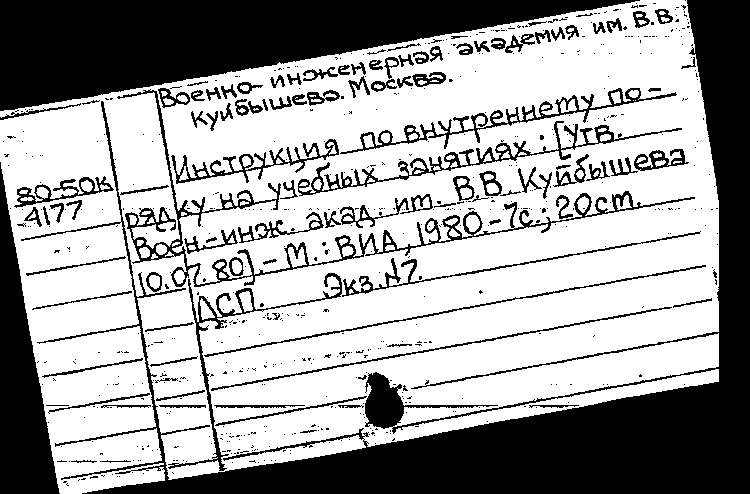 Военно-инженерная академия им. В.В.
Куйбышева. Москва.
Инструкция по внутреннему по-
80-50к
рядку на учебных занятиях: [Утв.
4177
Воен.-инж. акад. им. В.В. Куйбышева
10.07.80].- М.: ВИА, 1980.-7с.; 20см.
ДСП. Экз.№7.